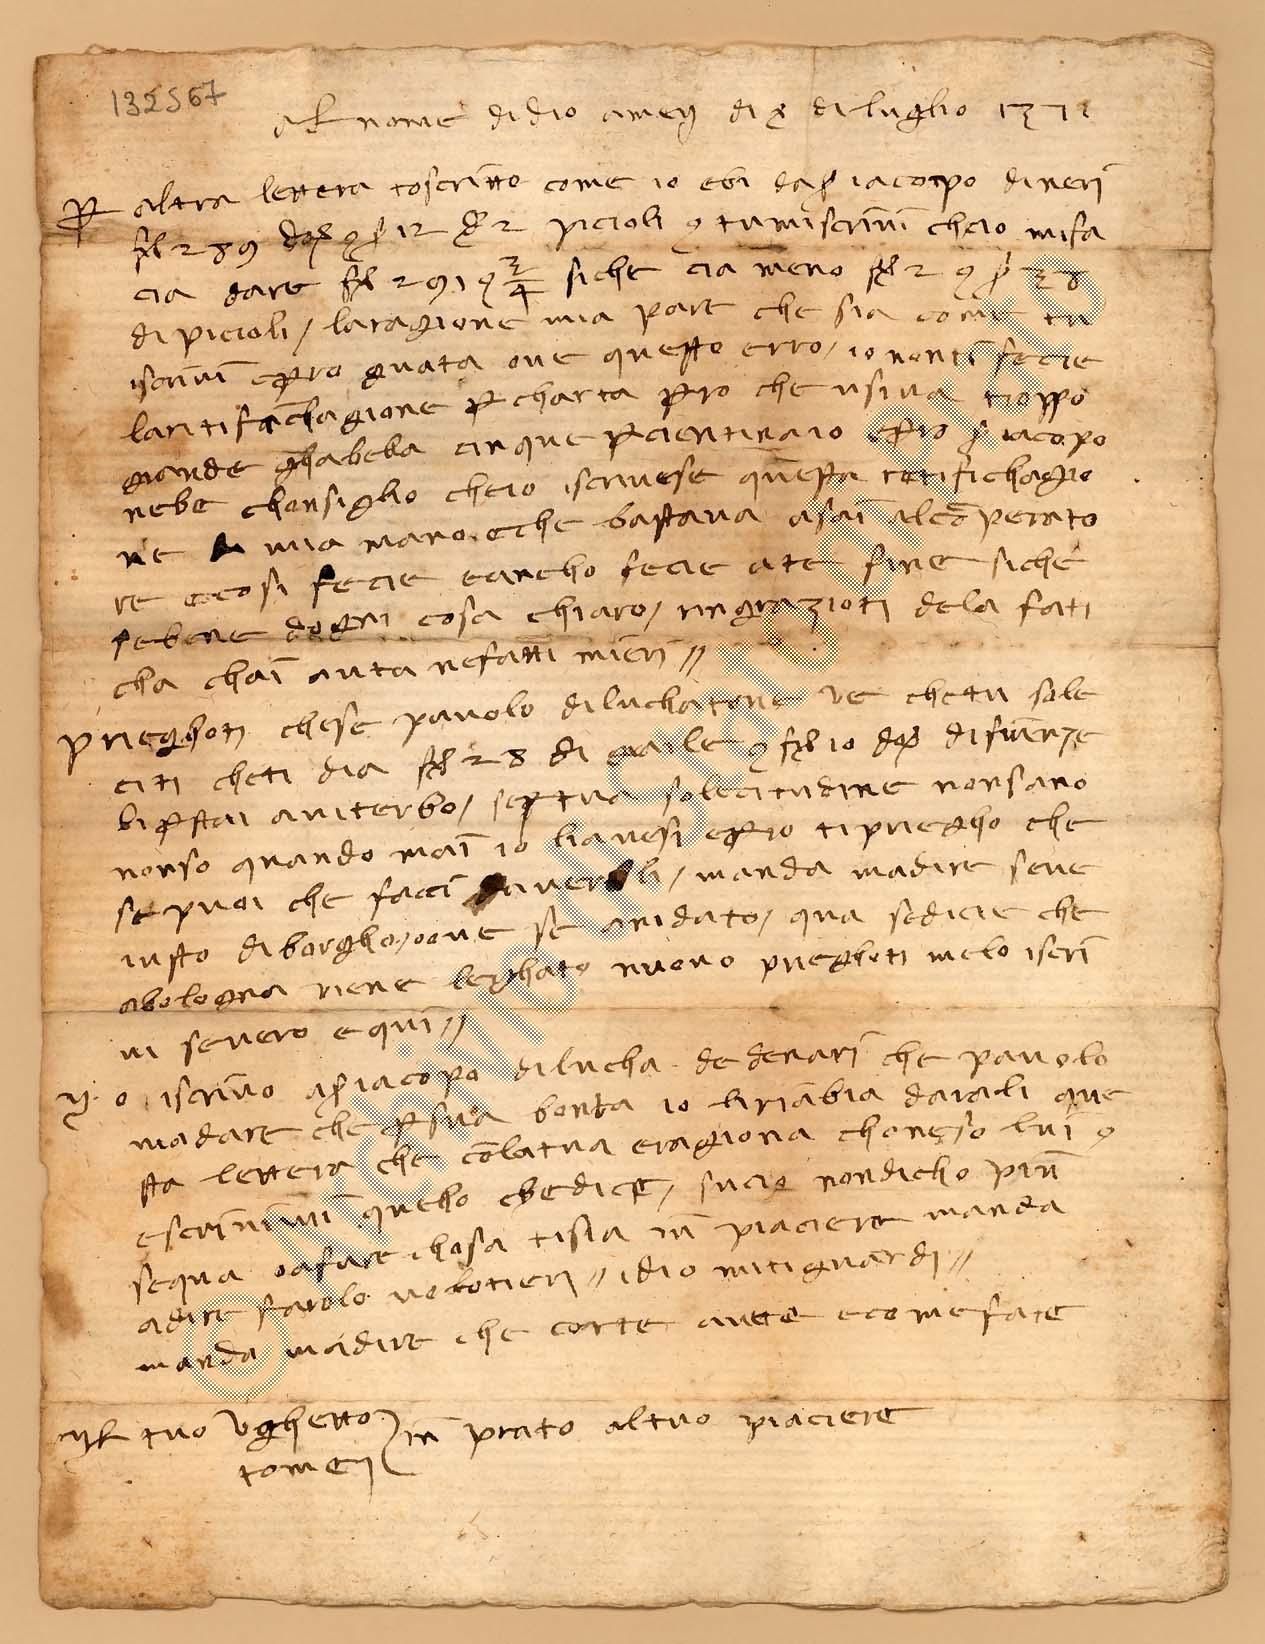 132567
Al nome di dio amen di x di luglio 1371
Per altra lettera toscritto come io ebi da s iacopo di neri
fl 289 doro e s 12 d 2 picioli e tu mi scrivi cheio mi fa
cia dare fl 291 e 3/4 siche cia meno fl 2 e s 38
di picioli / la ragione mia pare che sia come tu
iscrivi epro guata ove questo erro / io nonti fecie
laritifichagione per charta pro che usiva troppo
grande ghabella cinque per cientinaio epro s iacopo
nebe chonsiglio cheio iscrivese questa retifichagio
ne di mia mano e che bastava asai al coperato
re e cosi fecie e ancho fecie a te fine siche
se bene dogni cosa chiaro / ringrazioti dela fati
cha chai auta ne fatti miei //
prieghoti chese pauolo di lucha ve chetu sole
citi cheti dia fl 28 di e fl 10 doro di firenze
li prestai a viterbo / se per tua solecitudine non sano
nonso quando mai io liavesi e pro ti priegho che
se puoi che facci daverli / manda madire seve
iusto di borgho / o ove se andato / qua sedicie che
a bologna viene leghato nuovo prieghoti melo iscri
vi severo e qui //
io iscrivo a s iacopo di lucha de denari che pauolo
madare che per sua bonta io liriabia daiali que
sta lettera che cola tua e ragiona chonesso lui e
escrivimi quelo chedicie / sucio nondicho piu
sequa o a fare chosa tisia in piaciere manda
a dire farolo volotieri // idio mi ti guardi //
manda madire che corte avete e come facie
tuo Ughetto in prato al tuo piaciere
tomei